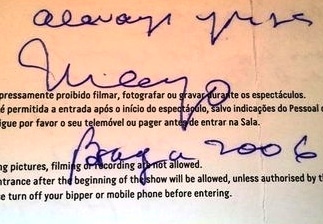 always yrs
pressamente proibido filmar, fotografar ou gravar durante os espectáculos.
é permitida a entrada após o início do espectáculo, salvo indicações do Pessoal
igue por favor o seu telemóvel ou pager antes de entrar na Sala.
Braga 2006
ng pictures, filming or recording are not allowed.
ntrance after the beginning of the show will be allowed, unless authorised by th
se turn off your bipper or mobile phone before entering.